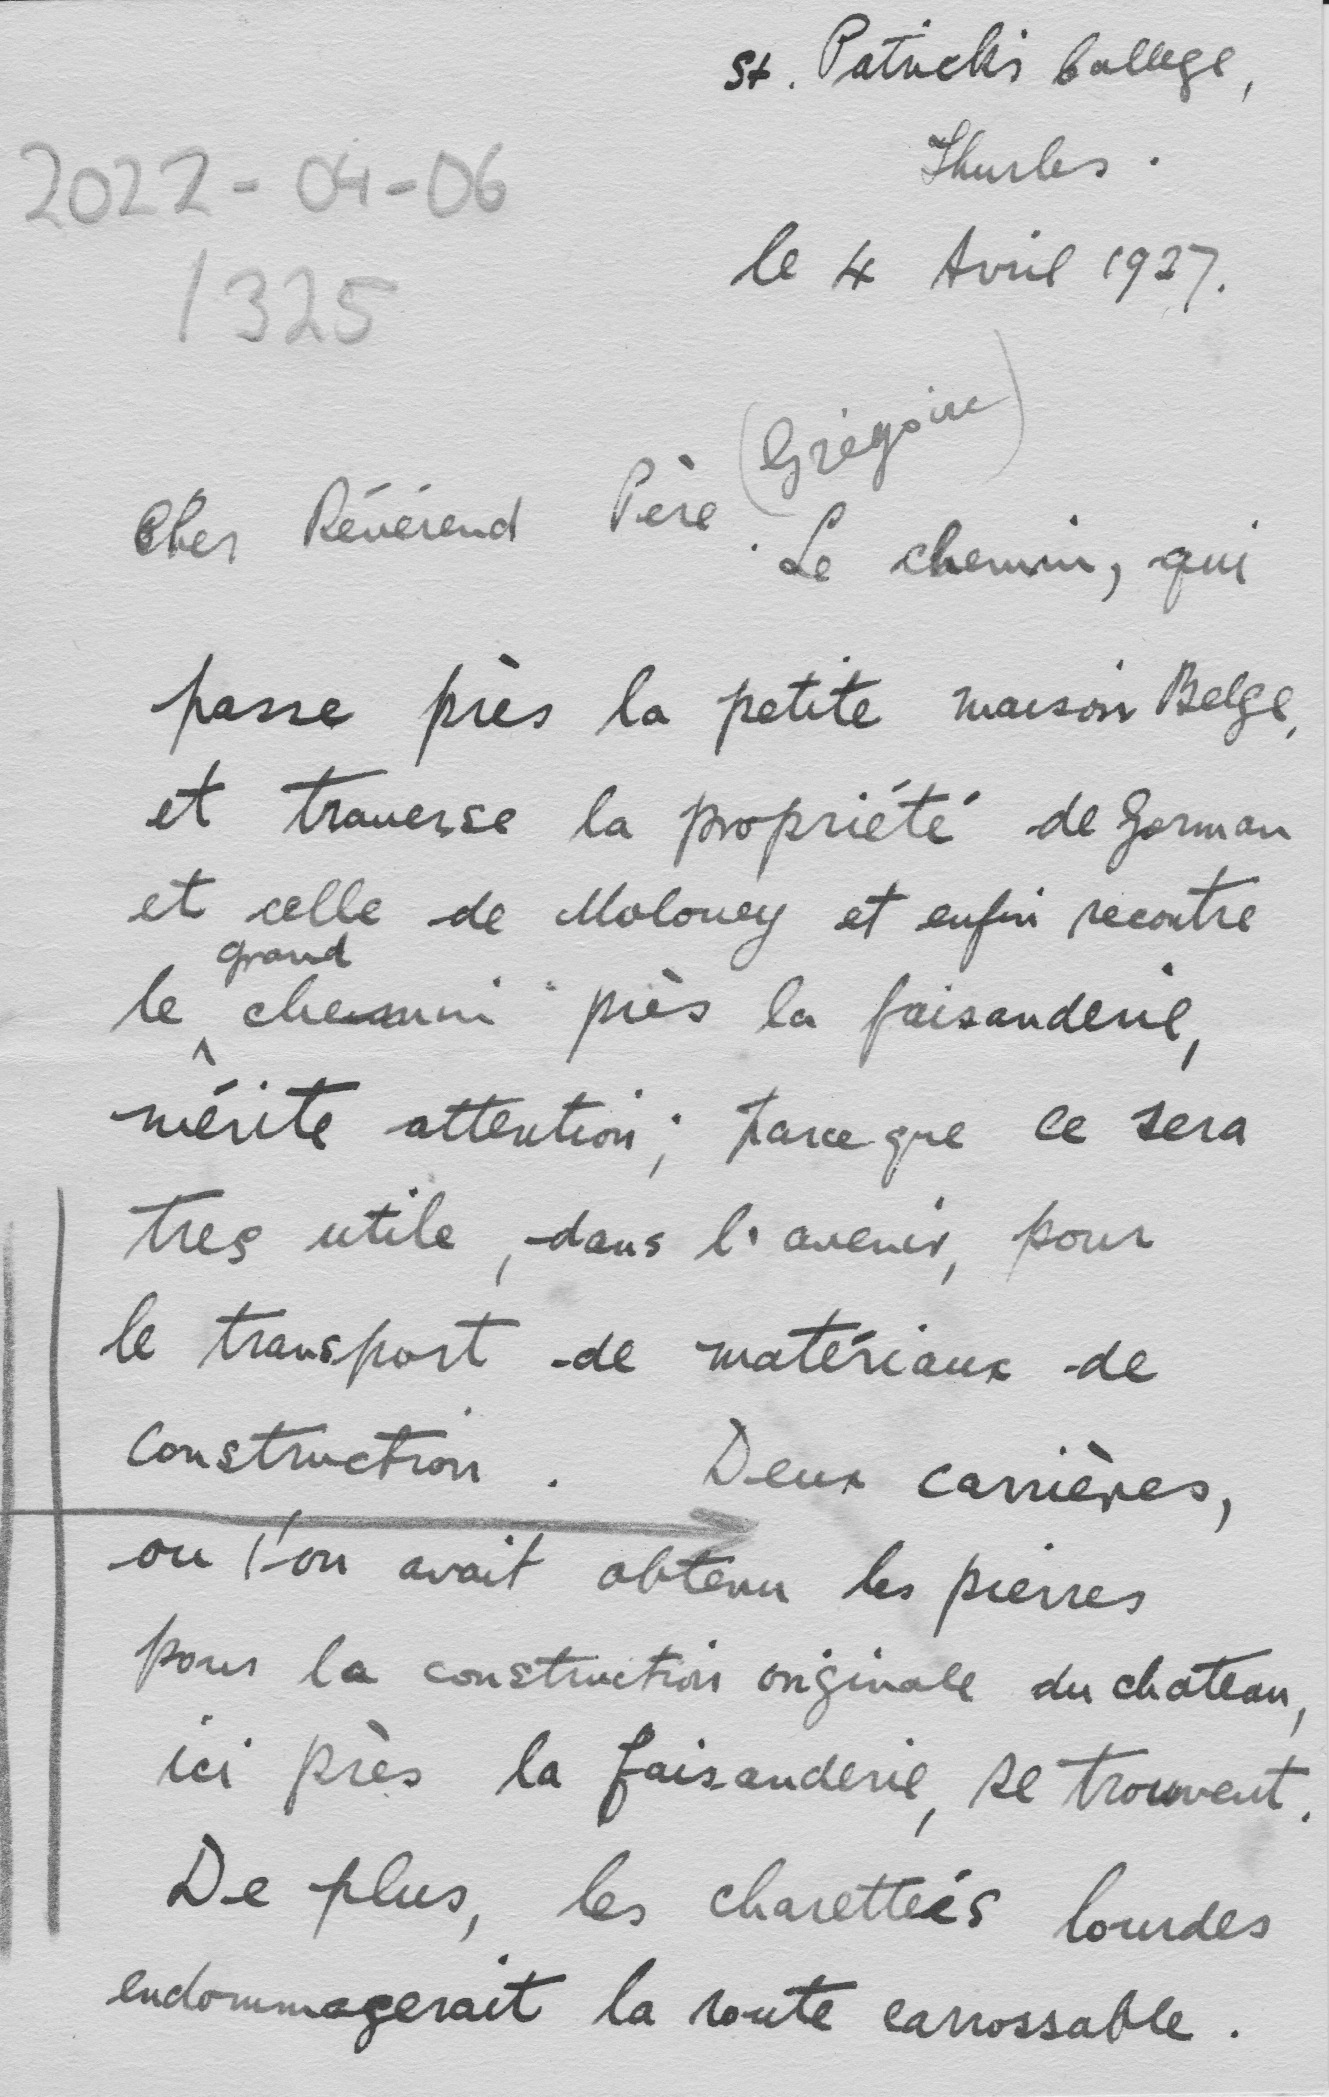 St. Patrick's College,
Thurles.
2022-04-06
1325
le 4 Avril 1927.
(Grégoire)
Cher Révérend Père.
Le chemin, qui
passe près la petite maison Belge,
et traverse la propriété de Gorman
et celle de Moloney et enfin recontre
grand
le ^ chemin près la faisanderie,
mérite attention; parce que ce sera
tres utile, dans l'avenir, pour
le transport de matériaux de
construction. Deux carrières,
ou l'on avait obtenu les pierres
pour la construction originale du chateau,
ici près la faisanderie, se trouvent.
De plus, les charettées lourdes
endommagerait la route carrossable.